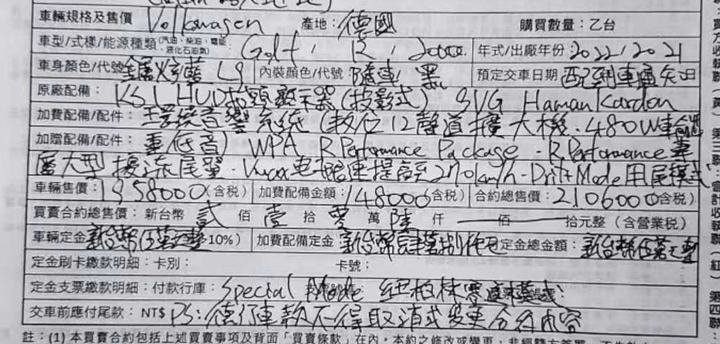 車輛規格及售價 Volkswagen 產地：德國 購買數量：乙台
車型/式樣/能源種類(汽油、柴油、電能、液化石油氣) Golf, R, 2000cc 年式/出廠年份：2022/2021
車身顏色/代號 L9 內裝顏色/代號 隨車 黑 預定交車日期 配到車通知日
原廠配備：KS1 HUD抬頭顯示器(投影式) SVG Haman Kardon
加費配備/配件：環繞音響系統(數位12聲道擴大機·480W
加贈配備/配件：重低音) WPA R Performance Package·R.Performance
大型擾流尾翼·Vmax電子極速提高至270km/h·Drift Mode甩尾模式
車輛售價：1958000(含稅) 加費配備金額：148000(含稅) 合約總售價：2106000(含稅)
買賣合約總售價：新台幣 貳佰壹拾零萬陸仟—佰—拾元整（含營業稅）
車輛定金 新台幣伍萬元整10%) 加費配備定金 新台幣 定金總金額：新台幣伍萬元整
定金刷卡繳款明細：卡別： 卡號：
定金支票繳款明細：付款行庫：Special Mode 紐柏林
交車前應付尾款：NT$ PS: 德行車款不得取消或變更合約內容
註：(1) 本買賣合約包括上述買賣事項及背面「買賣條款」在內。本約之修改或變更，非經雙方簽署